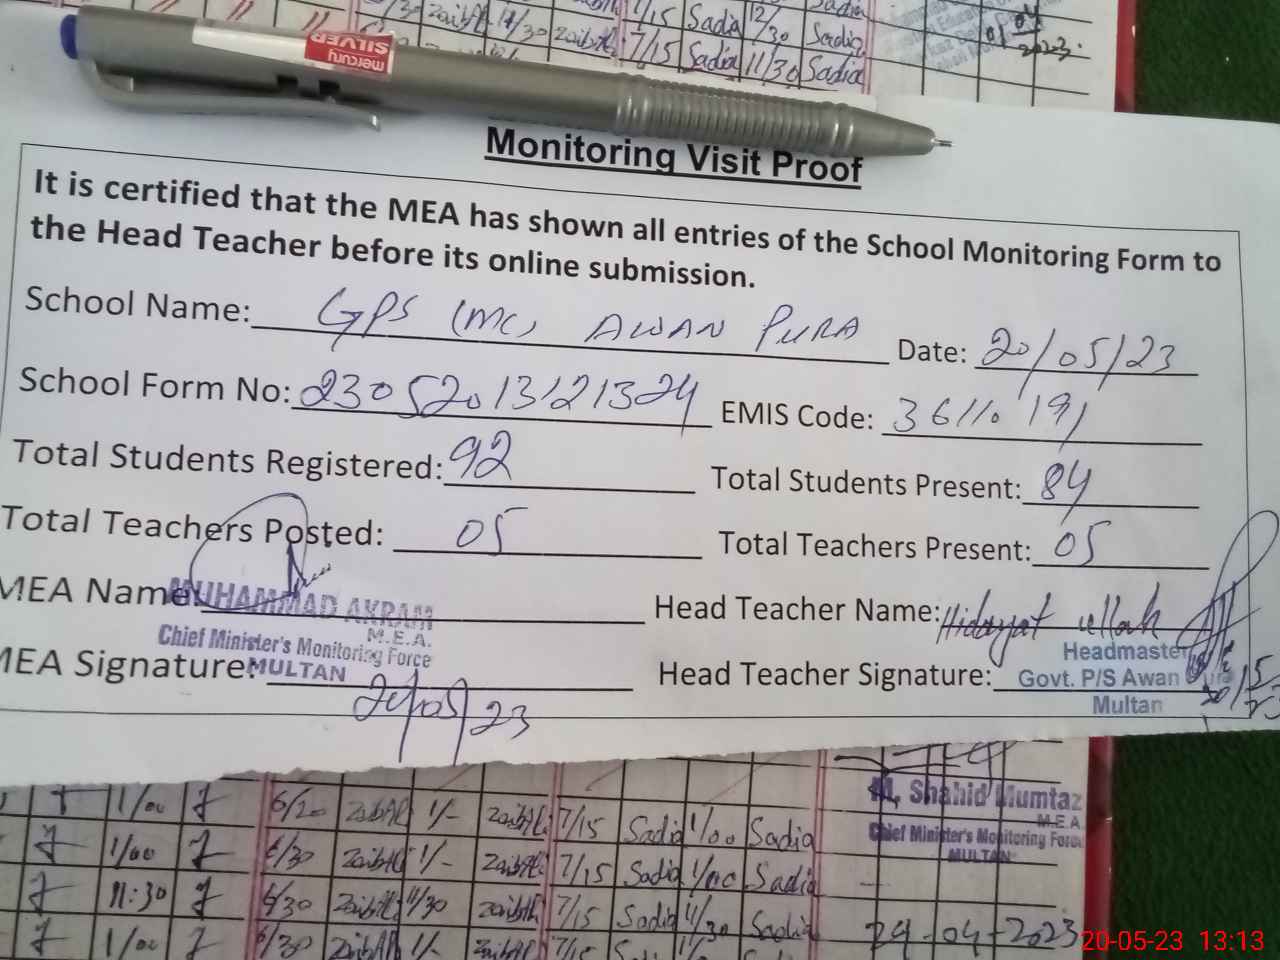 7/15 Sadia 12/30 Sadia
7/15 Sadia 11/30 Sadia
2023
mercury
SILVER
Monitoring Visit Proof
It is certified that the MEA has shown all entries of the School Monitoring Form to
the Head Teacher before its online submission.
School Name: GPS (MC) AWAN PURA Date: 20/05/23
School Form No: 23052013121324 EMIS Code: 36110191
Total Students Registered: 92 Total Students Present: 84
Total Teachers Posted: 05 Total Teachers Present: 05
MEA Name MUHAMMAD AKRAM Head Teacher Name: Hidayat ullah
M.E.A.
Chief Minister's Monitoring Force
MULTAN
MEA Signature: Head Teacher Signature:
Headmaster
Govt. P/S Awan Pura
Multan
20/05/23
20/5/23
M. Shahid Mumtaz
M.E.A.
Chief Minister's Monitoring Force
MULTAN
1/00 6/20 1/- 7/15 Sadia 1/00 Sadia
1/00 6/30 1/- 7/15 Sadia 1/00 Sadia
11:30 6/30 11/30 7/15 Sadia 11/30 Sadia
1/00 6/30 1/- 7/15
29-04-2023
20-05-23 13:13